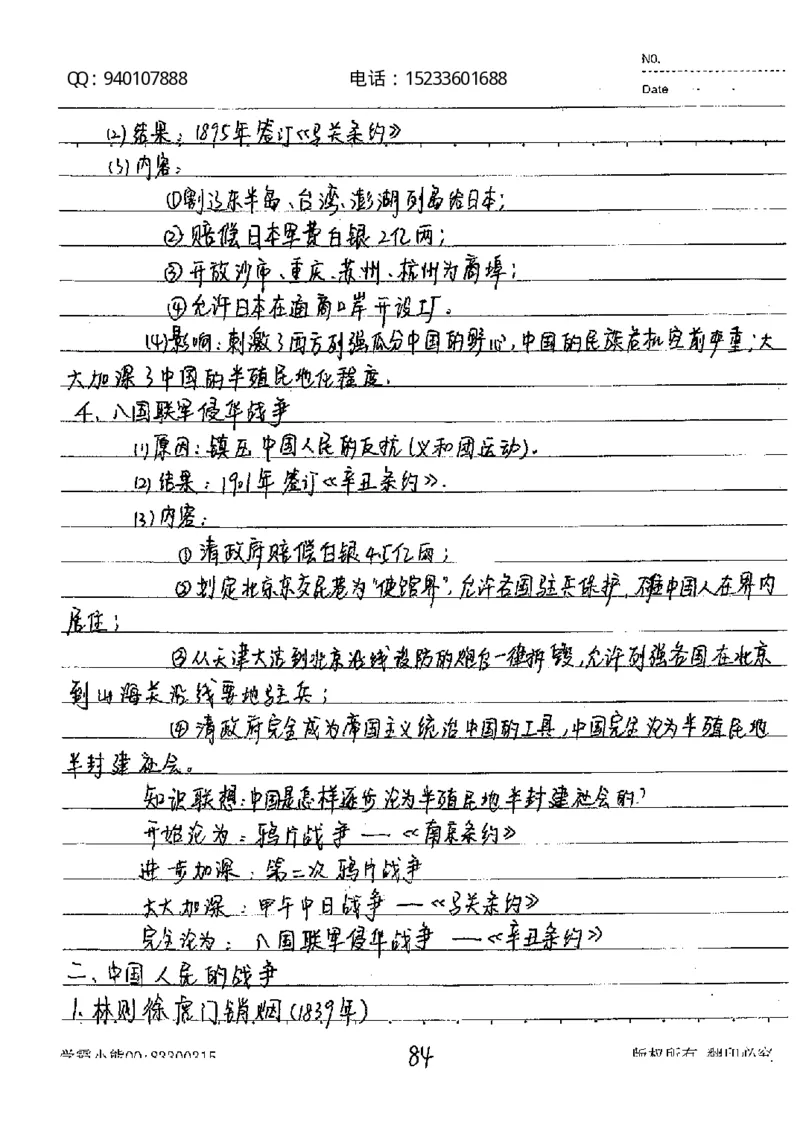 NO.
QQ：940107888 电话：15233601688
Date
(2)结果：1895年签订《马关条约》
(3)内容：
①割辽东半岛、台湾、澎湖列岛给日本；
②赔偿日本军费白银2亿两；
③开放沙市、重庆、苏州、杭州为商埠；
④允许日本在通商口岸开设工厂。
(4)影响：刺激了西方列强瓜分中国的野心，中国的民族危机空前严重；大
大加深了中国的半殖民地化程度。
4、八国联军侵华战争
(1)原因：镇压中国人民的反抗(义和团运动)。
(2)结果：1901年签订《辛丑条约》.
(3)内容：
①清政府赔偿白银4.5亿两；
②划定北京东交民巷为“使馆界”，允许各国驻兵保护，不准中国人在界内
居住；
③从天津大沽到北京沿线设防的炮台一律拆毁，允许列强各国在北京
到山海关沿线要地驻兵；
④清政府完全成为帝国主义统治中国的工具，中国完全沦为半殖民地
半封建社会。
知识联想：中国是怎样逐步沦为半殖民地半封建社会的？
开始沦为：鸦片战争——《南京条约》
进一步加深：第二次鸦片战争
大大加深：甲午中日战争—《马关条约》
完全沦为：八国联军侵华战争—《辛丑条约》
二、中国人民的战争
1. 林则徐虎门销烟(1839年)
学霸小熊QQ:83300315 84 版权所有 翻印必究